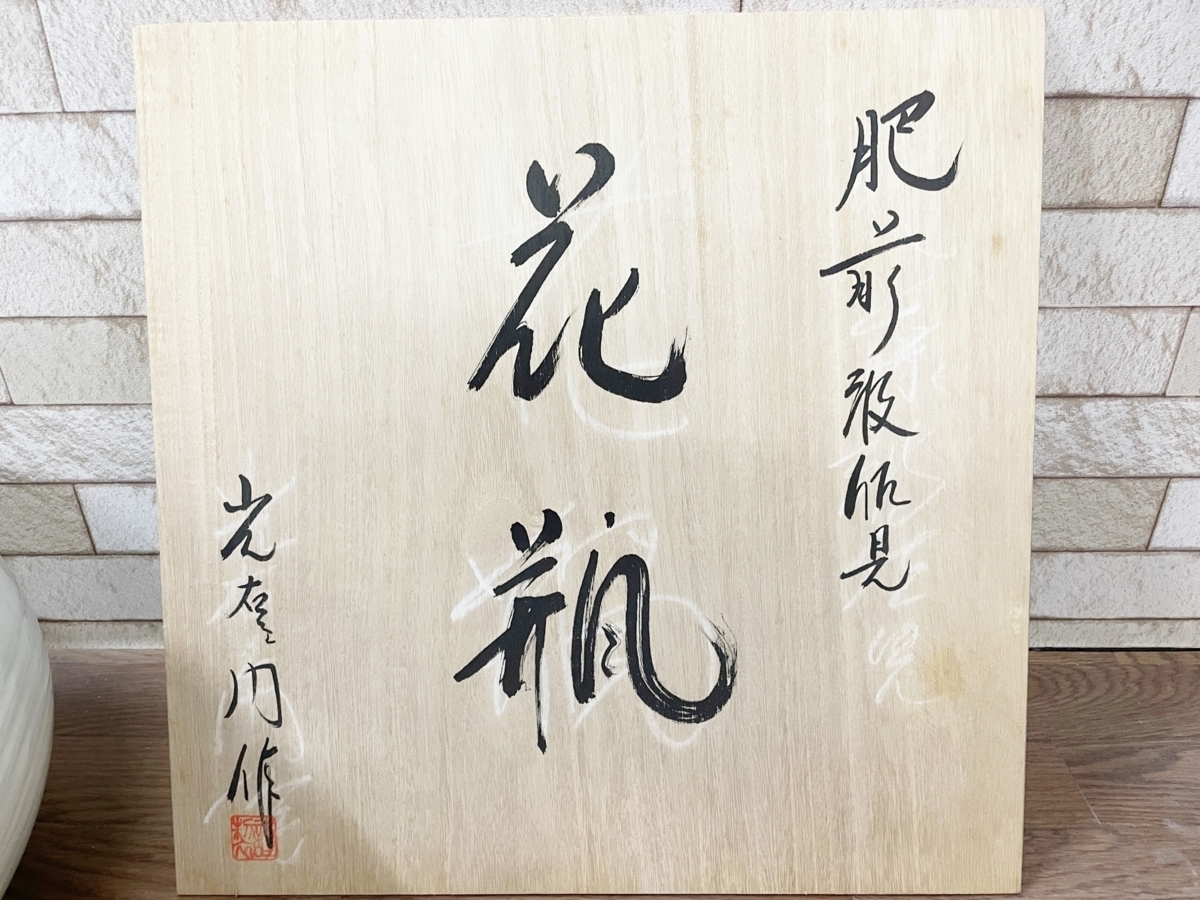 肥前波佐見
花瓶
光右ヱ門作